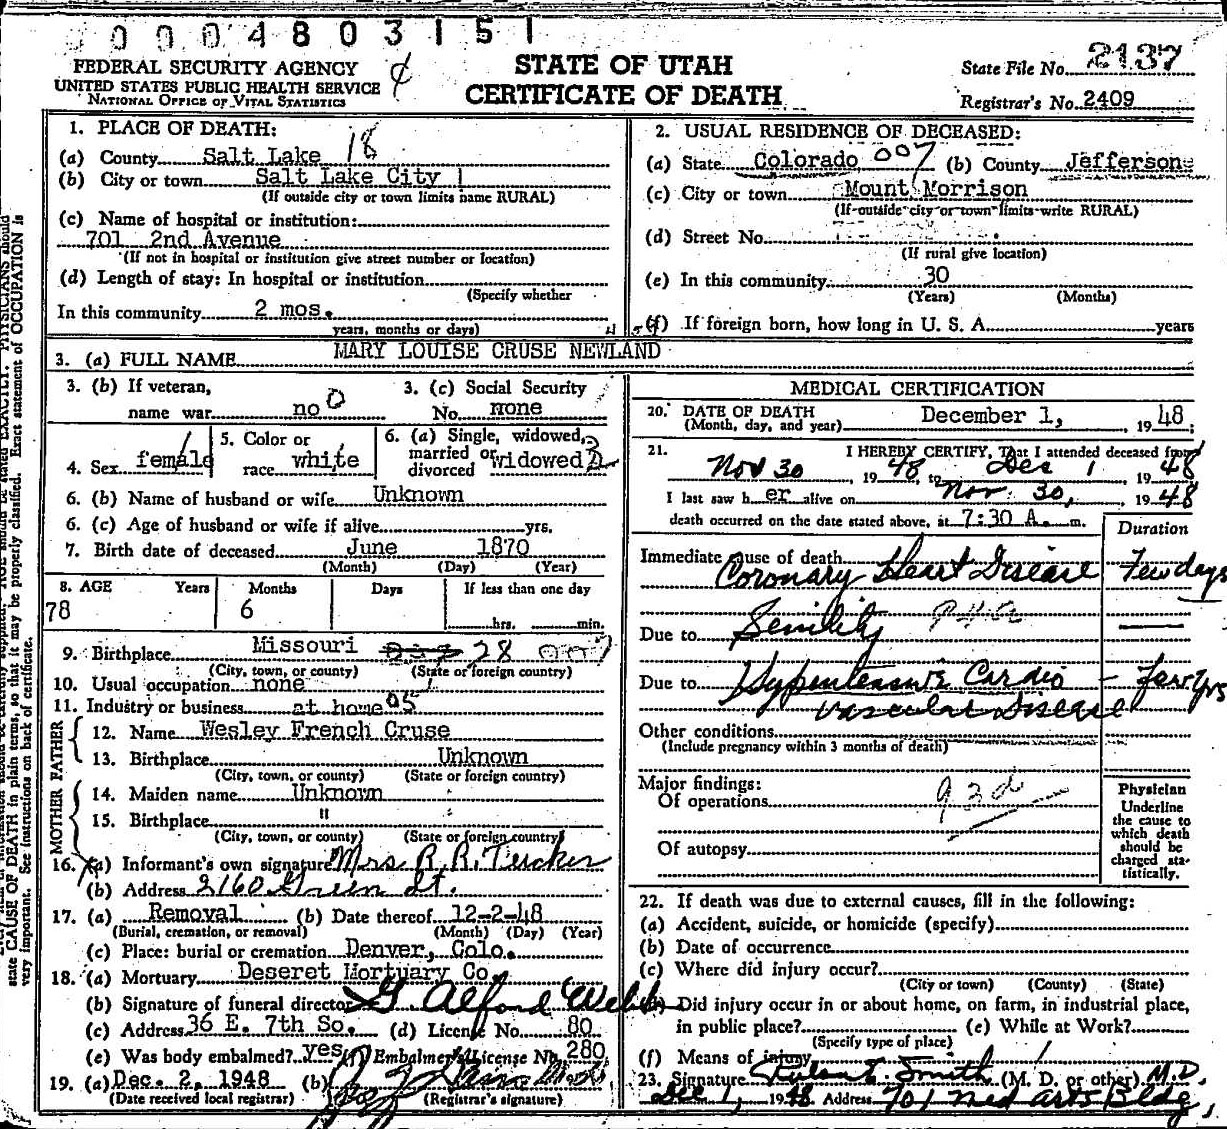 0004803151
FEDERAL SECURITY AGENCY
UNITED STATES PUBLIC HEALTH SERVICE
NATIONAL OFFICE OF VITAL STATISTICS
STATE OF UTAH
CERTIFICATE OF DEATH
State File No. 2137
Registrar's No. 2409
1. PLACE OF DEATH:
(a) County Salt Lake 18
(b) City or town Salt Lake City 1
(If outside city or town limits name RURAL)
(c) Name of hospital or institution:
701 2nd Avenue
(If not in hospital or institution give street number or location)
(d) Length of stay: In hospital or institution
(Specify whether
In this community 2 mos.
years, months or days)
2. USUAL RESIDENCE OF DECEASED:
(a) State Colorado 007 (b) County Jefferson
(c) City or town Mount Morrison
(If outside city or town limits write RURAL)
(d) Street No.
(If rural give location)
(e) In this community 30
(Years) (Months)
(f) If foreign born, how long in U. S. A. years
3. (a) FULL NAME MARY LOUISE CRUSE NEWLAND
3. (b) If veteran, name war no 0
3. (c) Social Security No. none
4. Sex female
5. Color or race white
6. (a) Single, widowed, married or divorced widowed
6. (b) Name of husband or wife Unknown
6. (c) Age of husband or wife if alive yrs.
7. Birth date of deceased June 1870
(Month) (Day) (Year)
8. AGE Years Months Days If less than one day
78 6 hrs. min.
9. Birthplace Missouri 28
(City, town, or county) (State or foreign country)
10. Usual occupation none
11. Industry or business at home 05
FATHER
12. Name Wesley French Cruse
13. Birthplace Unknown
(City, town, or county) (State or foreign country)
MOTHER
14. Maiden name Unknown
15. Birthplace "
(City, town, or county) (State or foreign country)
16. (a) Informant's own signature Mrs R. R. Tucker
(b) Address 2160 Green St.
17. (a) Removal (b) Date thereof 12-2-48
(Burial, cremation, or removal) (Month) (Day) (Year)
(c) Place: burial or cremation Denver, Colo.
18. (a) Mortuary Deseret Mortuary Co.
(b) Signature of funeral director G. Alford
(c) Address 36 E. 7th So. (d) License No. 80
(e) Was body embalmed? yes (f) Embalmer's License No. 280
19. (a) Dec. 2, 1948 (b)
(Date received local registrar) (Registrar's signature)
MEDICAL CERTIFICATION
20. DATE OF DEATH December 1, 1948;
(Month, day, and year)
21. I HEREBY CERTIFY, That I attended deceased from
Nov 30 1948, to Dec 1 1948
I last saw her alive on Nov. 30, 1948
death occurred on the date stated above, at 7:30 A. m.
Duration
Immediate cause of death
Coronary Heart Disease Few days
Due to Senility
Due to Hypertensive Cardio - Few Yrs
Vascular Disease
Other conditions
(Include pregnancy within 3 months of death)
Major findings:
Of operations 93d
Of autopsy
Physician
Underline
the cause to
which death
should be
charged sta-
tistically.
22. If death was due to external causes, fill in the following:
(a) Accident, suicide, or homicide (specify)
(b) Date of occurrence
(c) Where did injury occur?
(City or town) (County) (State)
Did injury occur in or about home, on farm, in industrial place,
in public place? (e) While at Work?
(Specify type of place)
(f) Means of injury
23. Signature Smith (M. D. or other) M.D.
Dec 1, 1948 Address 701 Med Arts Bldg,
state CAUSE OF DEATH in plain terms, so that it may be properly classified. Exact statement of OCCUPATION is
very important. See instructions on back of certificate.